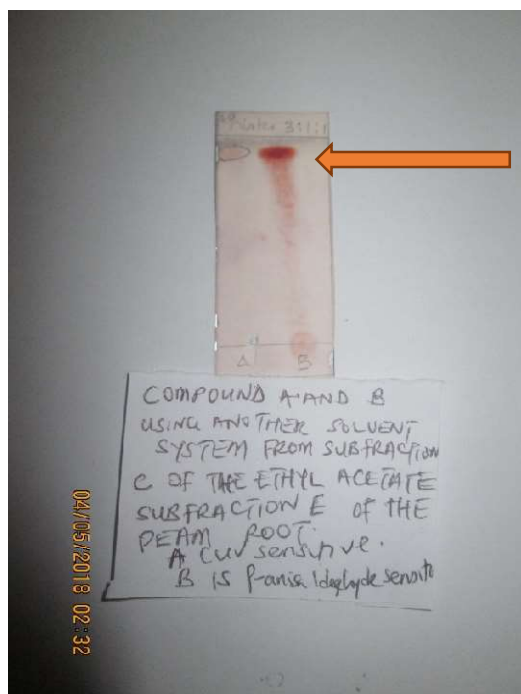 Water 3:1:1
A
B
COMPOUND A AND B
USING ANOTHER SOLVENT
SYSTEM FROM SUBFRACTION
C OF THE ETHYL ACETATE
SUBFRACTION E OF THE
PEAM ROOT.
A (UV sensitive.
B is P-anisaldehyde sensitive
04/05/2018 02:32